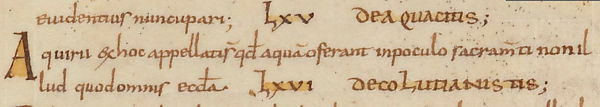 euidentius nuncupari; Lxv DE AQUARIIS;
Aquarii ex hoc appellati sunt q̅d aquā offerant in poculo sacram̅ti non il
lud quod omnis eccl̅a. Lxvi De coLutianistis;